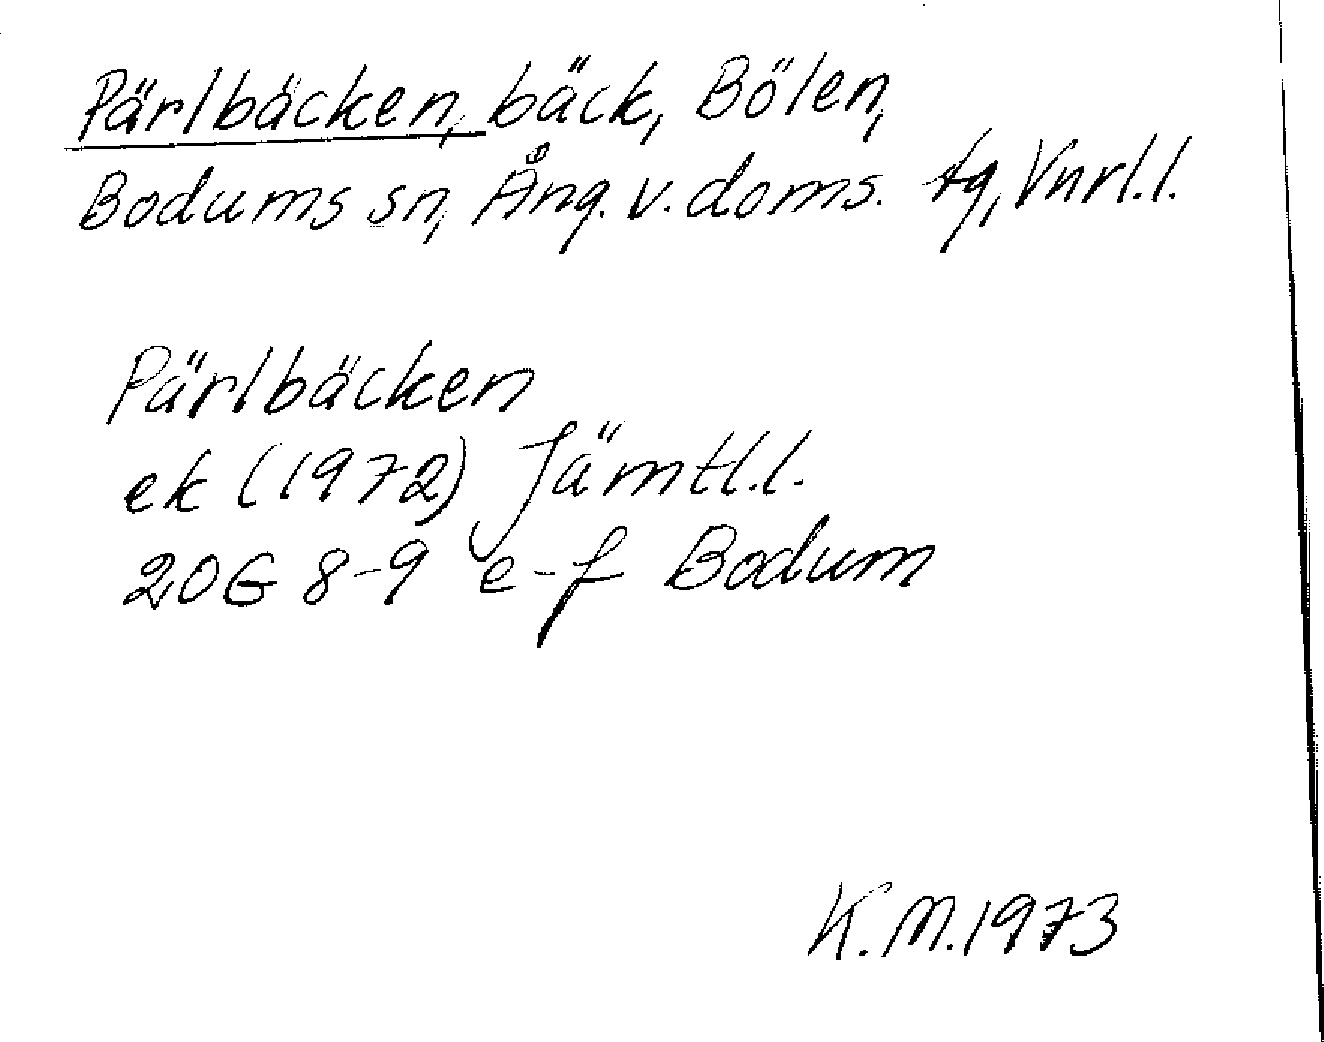 Pärlbäcken, bäck, Bölen,
Bodums sn, Ång. v. doms. tg, Vnrl.l.
Pärlbäcken
ek (1972) Jämtl.l.
20G 8-9 e-f Bodum
K.M.1973